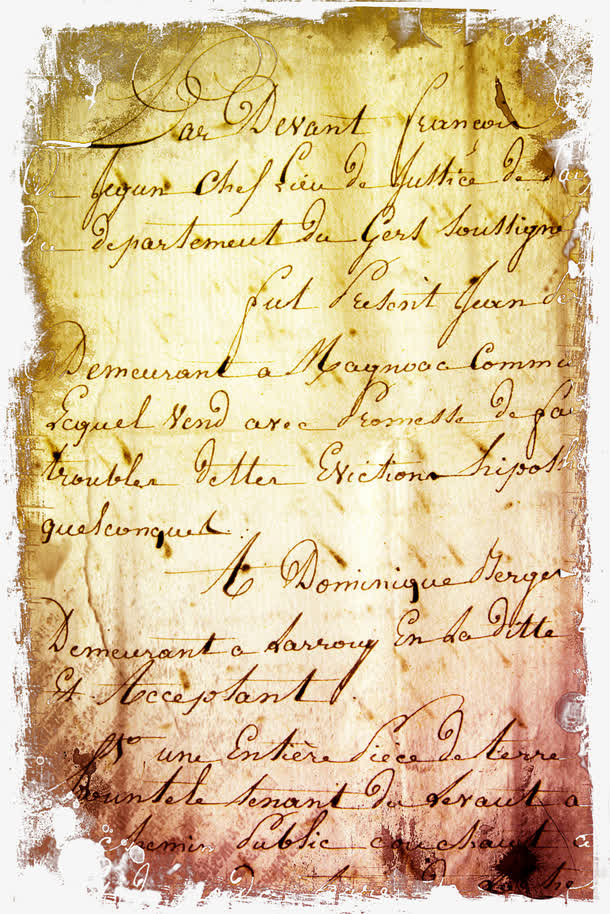 Par Devant françois
Jegun Chef Lieu de Justice de
departement du Gers Soussigné
fut Présent Jean
Demeurant a Magnoac Commu
Lequel Vend avec Promesse de fa
troubles dettes Evictions hipoth
quelconques
A Dominique Verges
Demeurant a Larrouy En La ditte
Et Acceptant
1° une Entière Pièce de terre
tenant du Levant a
chemin Public couchant a